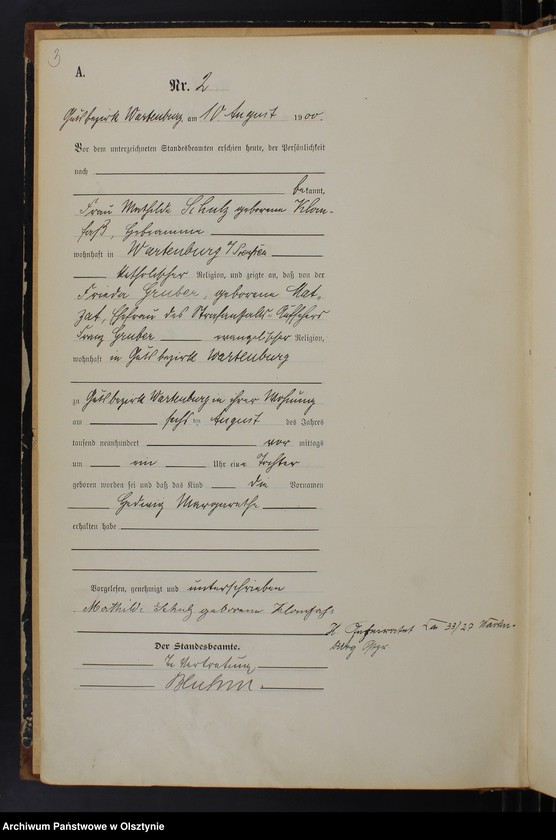 3
A.
Nr. 2
Gutsbezirk Wartenburg am 10 August 1900.
Vor dem unterzeichneten Standesbeamten erschien heute, der Persönlichkeit
nach
bekannt,
Frau Mathilde Schulz geborene Klom-
faß, Hebeamme
wohnhaft in Wartenburg
katholischer Religion, und zeigte an, daß von der
Frieda Gruber, geborene Mat-
zat, Ehefrau des Strafanstalts-Aufsehers
Franz Gruber evangelischer Religion,
wohnhaft in Gutsbezirk Wartenburg
zu Gutsbezirk Wartenburg in ihrer Wohnung
am sechsten August des Jahres
tausend neunhundert vor mittags
um ein Uhr eine Tochter
geboren worden sei und daß das Kind die Vornamen
Hedwig Margarethe
erhalten habe
Vorgelesen, genehmigt und unterschrieben
Mathilde Schulz geborene Klomfaß
Der Standesbeamte.
In Vertretung
Bluhm.
Geheiratet 33/27
Archiwum Państwowe w Olsztynie